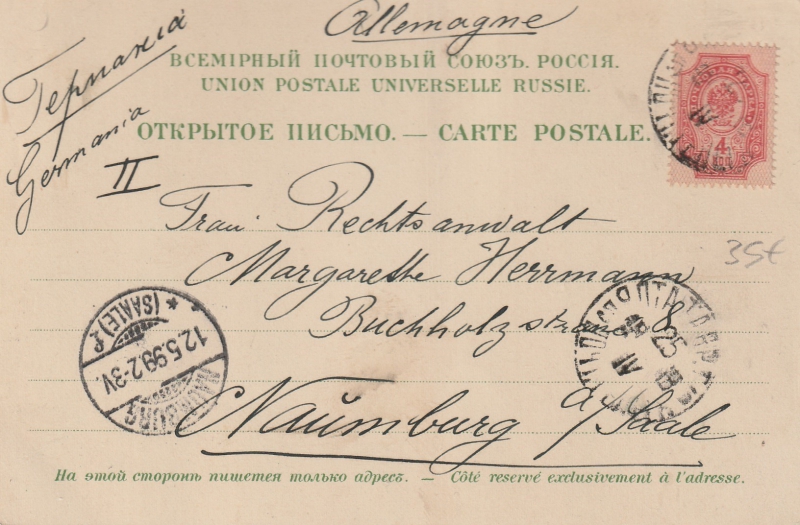 Allemagne
Германія
Germania
ВСЕМІРНЫЙ ПОЧТОВЫЙ СОЮЗЪ. РОССІЯ.
UNION POSTALE UNIVERSELLE RUSSIE.
ОТКРЫТОЕ ПИСЬМО. — CARTE POSTALE.
4
II
Frau Rechtsanwalt
Margarethe Herrmann
35€
Buchholzstrasse 8
Naumburg a/Saale
NAUMBURG
(SAALE)
12.5.99.2-3V.
На этой сторонѣ пишется только адресъ. — Côté reservé exclusivement à l'adresse.